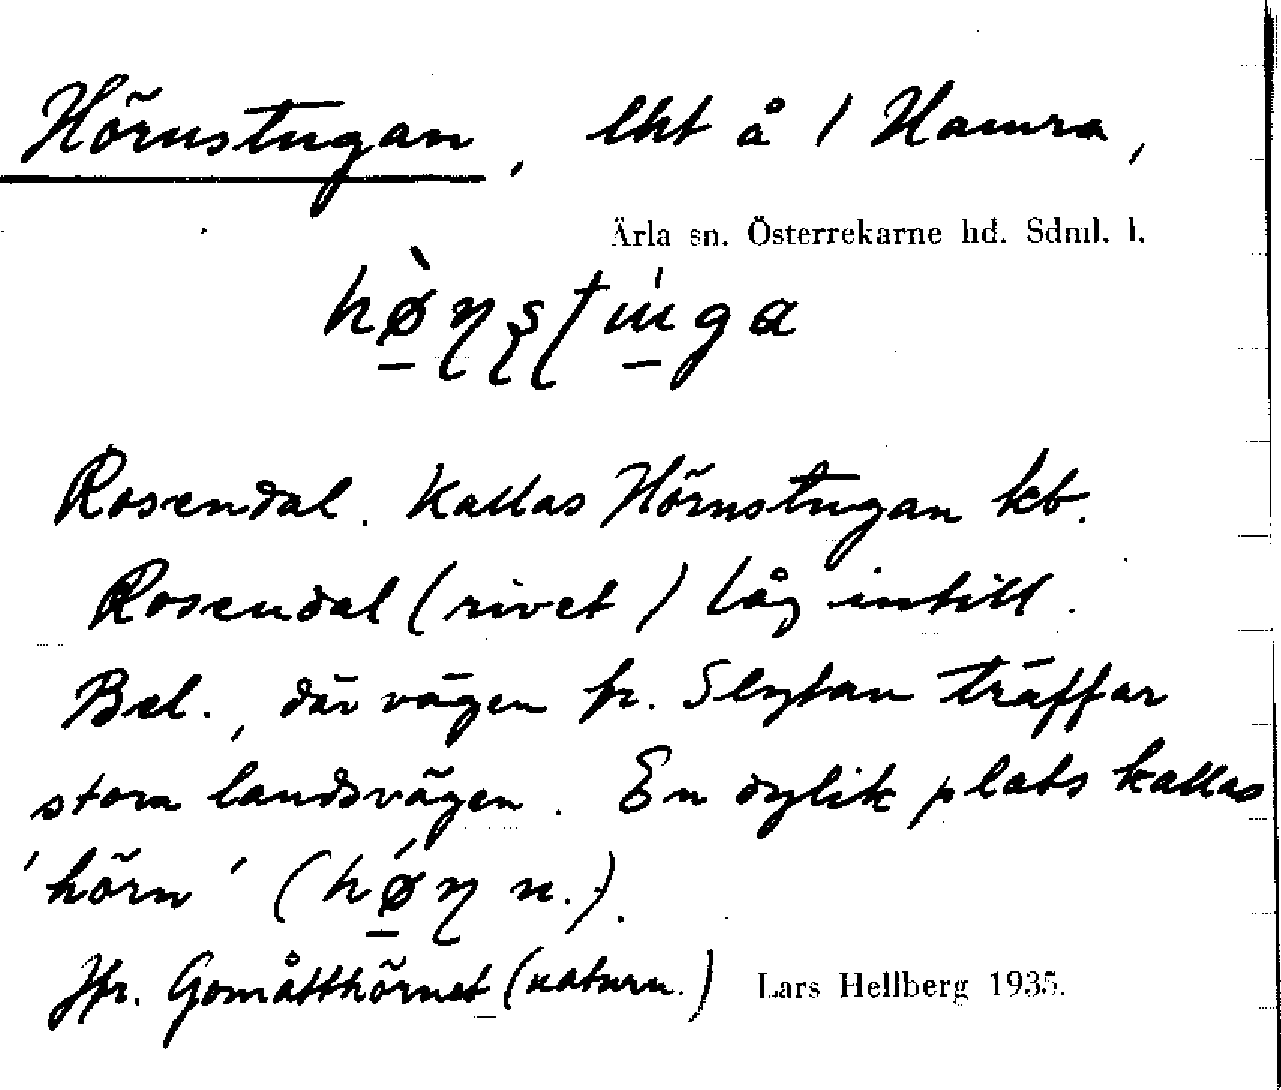 Hörnstugan, lht å 1 Hamra,
Ärla sn. Österrekarne hd. Sdml. l.
Rosendal. Kallas Hörnstugan kb.
Rosendal (rivet) låg intill.
Bel., där vägen fr. Slytan träffar
stora landsvägen. En dylik plats kallas
'hörn' (hǿ̱ɳ n.).
Jfr. Gomåtthörnet (naturn.) Lars Hellberg 1935.